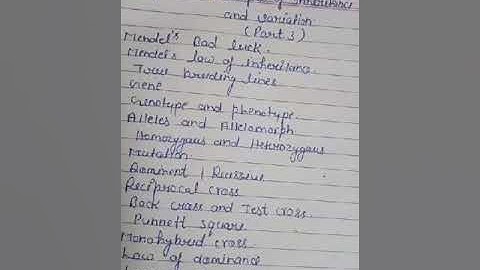 of Inheritance
and variation
(Part 3)
Mendel's Bad luck.
Mendel's law of inheritance.
True breeding lines
Gene
Genotype and phenotype.
Alleles and Allelomorph
Homozygous and Heterozygous
Mutation
Dominant / Recessive
Reciprocal cross
Back cross and Test cross.
Punnett square
Monohybrid cross
Law of dominance